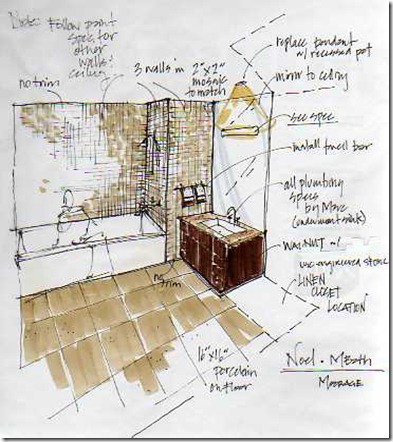 Note: Follow paint
spec for
other
walls &
ceiling
no trim
3 walls in 2"x2"
mosaic
to match
replace pendant
w/ recessed pot
mirror to ceiling
see spec
install towel bar
all plumbing
specs
by Marc
(undermount sink)
WALNUT w/
engineered stone
LINEN
CLOSET
LOCATION
no
trim
16"x16"
porcelain
on floor